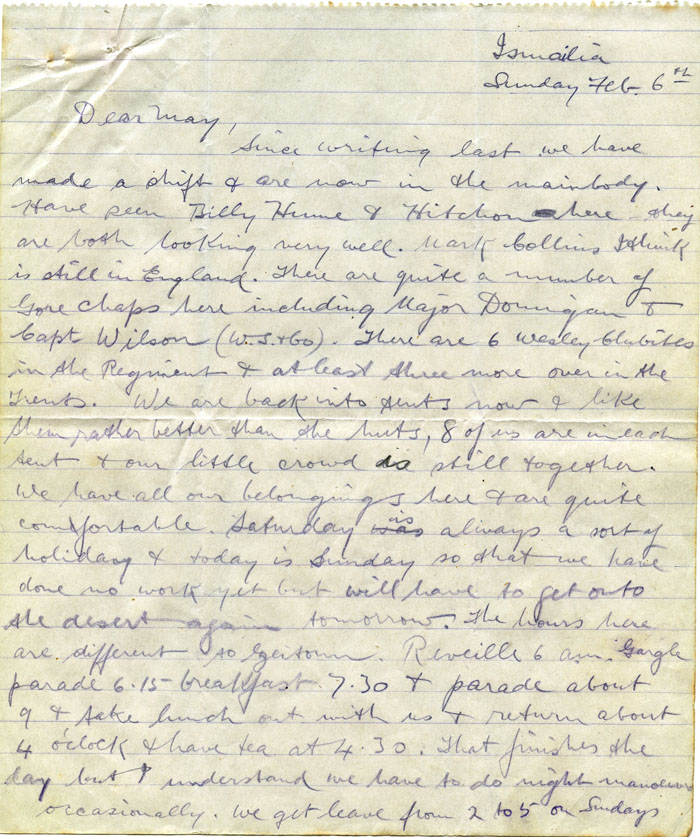 Ismailia
Sunday Feb. 6th
Dear May,
Since writing last we have
made a shift & are now in the mainbody.
Have seen Billy Hume & Hitchon here - they
are both looking very well. Mark Collins I think
is still in England. There are quite a number of
Gore chaps here including Major Donnigan &
Capt Wilson (W.S.&Co). There are 6 Wesley Clubites
in the Regiment & at least three more over in the
Trents. We are back into tents now & like
them rather better than the huts, 8 of us are in each
tent & our little crowd is still together.
We have all our belongings here & are quite
comfortable. Saturday was is always a sort of
holiday & today is Sunday so that we have
done no work yet but will have to get onto
the desert again tomorrow. The hours here
are different to Zeitoun. Reveille 6 am. Gargle
parade 6.15 - breakfast 7.30 & parade about
9 & take lunch out with us & return about
4 o'clock & have tea at 4.30. That finishes the
day but I understand we have to do night manouvres
occasionally. We get leave from 2 to 5 on Sundays